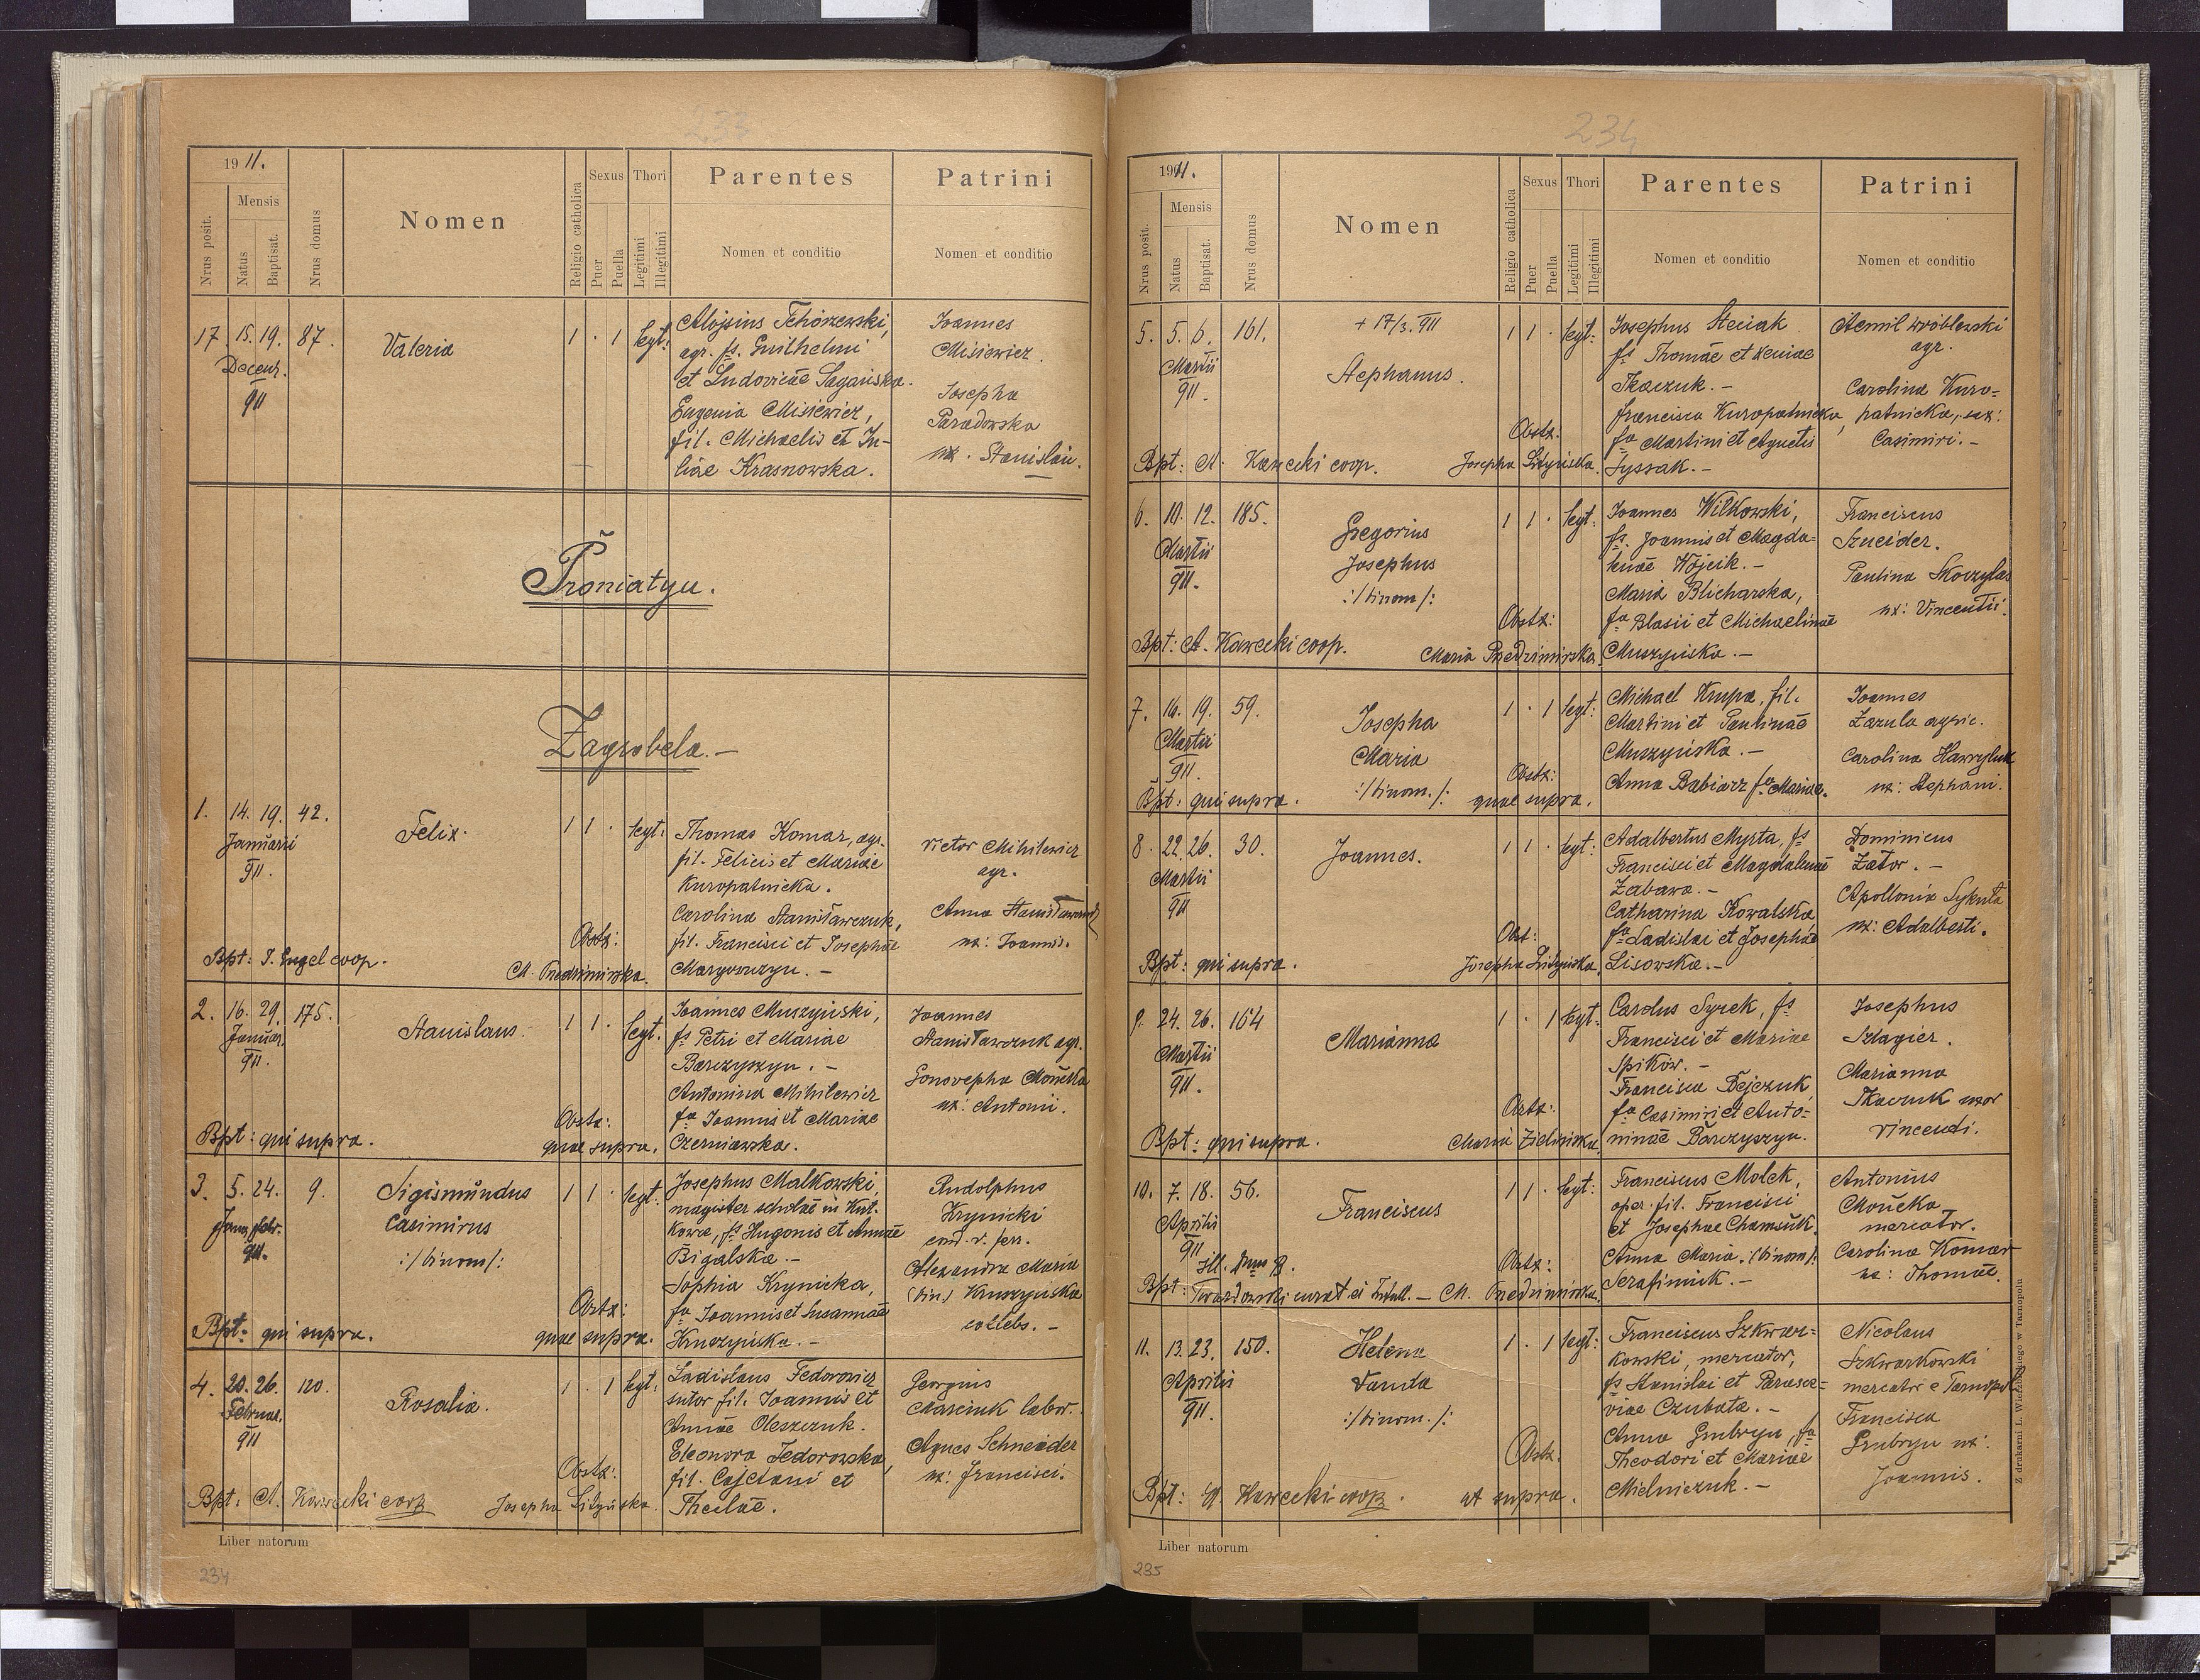 233
1911.
Mensis
Nrus posit.
Natus
Baptisat.
Nrus domus
Nomen
Religio catholica
Sexus
Puer
Puella
Thori
Legitimi
Illegitimi
Parentes
Nomen et conditio
Patrini
Nomen et conditio
17 15. 19. 87.
Decem.
911
Valeria
1 . 1 legt:
Aloysius Tchórzewski,
agr. fs. Guilhelmi
et Ludovicae Sagańska.
Eugenia Misiewicz,
fil. Michaelis et Ju-
liae Krasnowska.
Joannes
Misiewicz.
Josepha
Paradowska
ux. Stanislai.
Proniatyn.
Zagrobela.-
1. 14. 19. 42.
Januarii
911.
Felix.
1 1 . legt:
Thomas Komar, agr.
fil. Felicis et Mariae
Kuropatnicka.
Carolina Stanisławczuk,
fil. Francisci et Josephae
Victor Mihilewicz
agr.
Anna
ux: Joannis.
Obstx:
Bpt: J. Engel coop.
2. 16. 29. 175.
Januar.
911.
Stanislaus
1 1 . legt.
Joannes Muszyński,
fs Petri et Mariae
Barczyszyn. -
Antonina Mihilewicz
fa Joannis et Mariae
Czerniawska.
Joannes
Stanisławczuk agr.
Genovepha Moñcka
ux: Antonii.
Obstx:
quae supra.
Bpt: qui supra.
3. 5. 24. 9.
911.
Sigismundus
Casimirus
:/binom/:
1 1 . legt:
Josephus Malkowski,
magister scholae in Kut-
kowce, fs Hugonis et Annae
Bigalska.-
Sophia Krynicka,
fa Joannis et Susannae
Kruszyńska.-
Rudolphus
Krynicki
Alexandra Maria
(bin) Kruszyńska
coelebs. -
Obstx:
quae supra.
Bpt: qui supra.
4. 20. 26. 120.
Februar.
911
Rosalia.
1 . 1 legt:
Ladislaus Fedorowicz
sutor fil. Joannis et
Annae Oleszczuk.
Eleonora Fedorowska,
fil. Cajetani et
Theclae.
Georgius
Marciuk labor.
Agnes Schneider
ux: Francisci.
Obstx:
Bpt: A. Kawecki coop
Josepha
Liber natorum
234
234
1911.
Mensis
Nrus posit.
Natus
Baptisat.
Nrus domus
Nomen
Religio catholica
Sexus
Puer
Puella
Thori
Legitimi
Illegitimi
Parentes
Nomen et conditio
Patrini
Nomen et conditio
5. 5. 6. 161.
Martii
911.
+ 17/3. 911
Stephanus.
1 1 . legt:
Josephus Steciak
fs Thomae et Xeniae
Tkaczuk. -
Francisca Kuropatnicka,
fa Martini et Agnetis
Lyssak.-
Aemil Wróblewski
agr.
Carolina Kuro-
patnicka, ux:
Casimiri.-
Obstx:
Bpt: A. Kawecki coop.
Josepha
6. 10. 12. 185.
Martii
911.
Gregorius
Josephus
:/binom/:
1 1 . legt:
Joannes Wilkowski,
fs. Joannis et Magda-
lenae Wójcik.-
Maria Blicharska,
fa Blasii et Michaelinae
Muszyńska.-
Franciscus
Szneider.
Paulina Skoczylas
ux: Vincentii.
Obstx:
Bpt: A. Kawecki coop.
7. 16. 19. 59.
Martii
911.
Josepha
Maria
:/binom./:
1 . 1 legt:
Michael Krupa, fil.
Martini et Paulinae
Muszyńska.-
Anna Babiarz fa Mariae.
Joannes
Zazula agric.
Carolina Hawryluk
ux: Stephani.
Obstx:
Bpt: qui supra.
quae supra.
8. 22. 26. 30.
Martii
911
Joannes.
1 1 . legt:
Adalbertus Myrta, fs
Francisci et Magdalenae
Zabawa.-
Catharina Kowalska
fa Ladislai et Josephae
Lisowska.-
Dominicus
Zator. -
Apollonia Sykuta
ux: Adalberti.
Obst:
Bpt: qui supra.
Josepha
9. 24. 26. 164
Martii
911.
Marianna
1 . 1 legt:
Carolus Syrek, fs
Francisci et Mariae
Spików.-
Francisca Dejczuk
fa Casimiri et Anto-
ninae Barczyszyn.
Josephus
Szlagier.
Marianna
Tkaczuk uxor
Vincenti.
Obstx:
Bpt: qui supra.
Maria Zielińska
10. 7. 18. 56.
Aprilis
911
Franciscus
1 1 . legt:
Franciscus Molek,
oper. fil. Francisci
et Josephae Chamsuk.
Anna Maria :/binom/:
Serafiniuk.-
Antonius
Moñcka
mercator.
Carolina Komar
ux: Thomae.
Obstx:
Bpt:
11. 13. 23. 150.
Aprilis
911.
Helena
Vanda
:/binom./:
1 . 1 legt:
Franciscus Szkwar-
kowski, mercator,
fs Stanislai et Parasce-
viae Czubata.-
Anna Grubryn, fa
Theodori et Mariae
Mielniczuk.-
Nicolaus
Szkwarkowski
mercator e Tarnopol
Francisca
Grubryn ux:
Joannis.
Obstx.
Bpt: A. Kawecki coop.
ut supra.
Liber natorum
235
Z drukarni L. Wierzbickiego w Tarnopolu